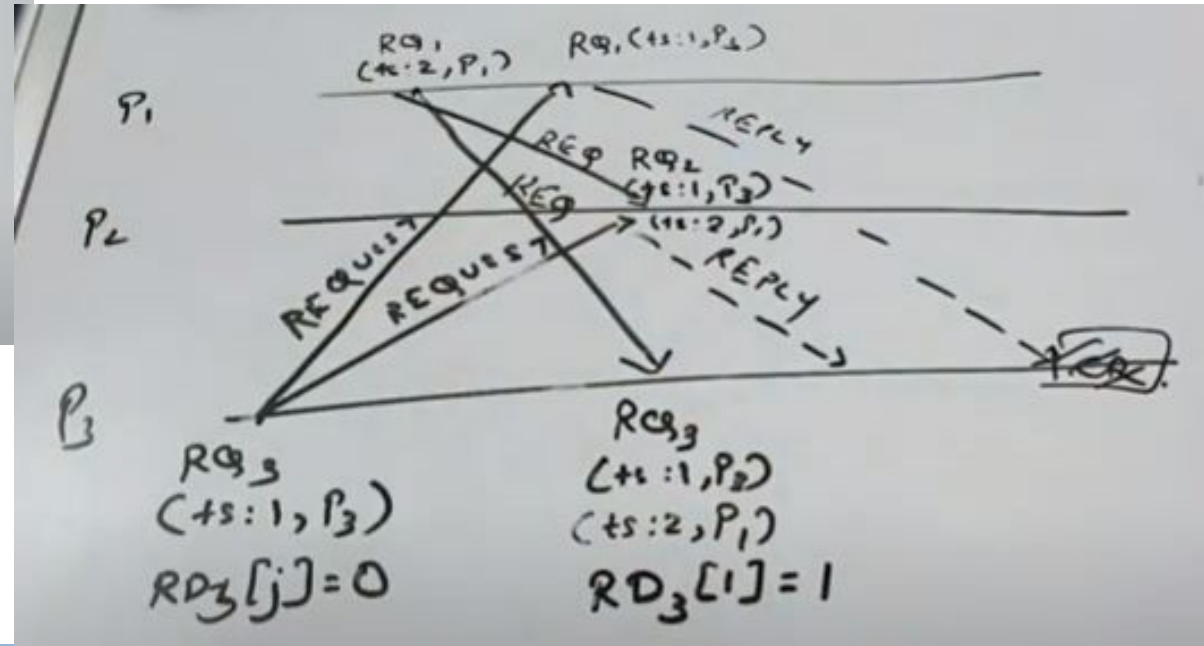 RQ1 RQ1 (ts:1, P3)
(ts:2, P1)
P1
REPLY
REQ RQ2
(ts:1, P3)
REQ
P2
(ts:2, P1)
REQUEST
REQUEST
REPLY
P3
RQ3
(ts:1, P3)
RD3[j]=0
RQ3
(ts:1, P3)
(ts:2, P1)
RD3[1]=1